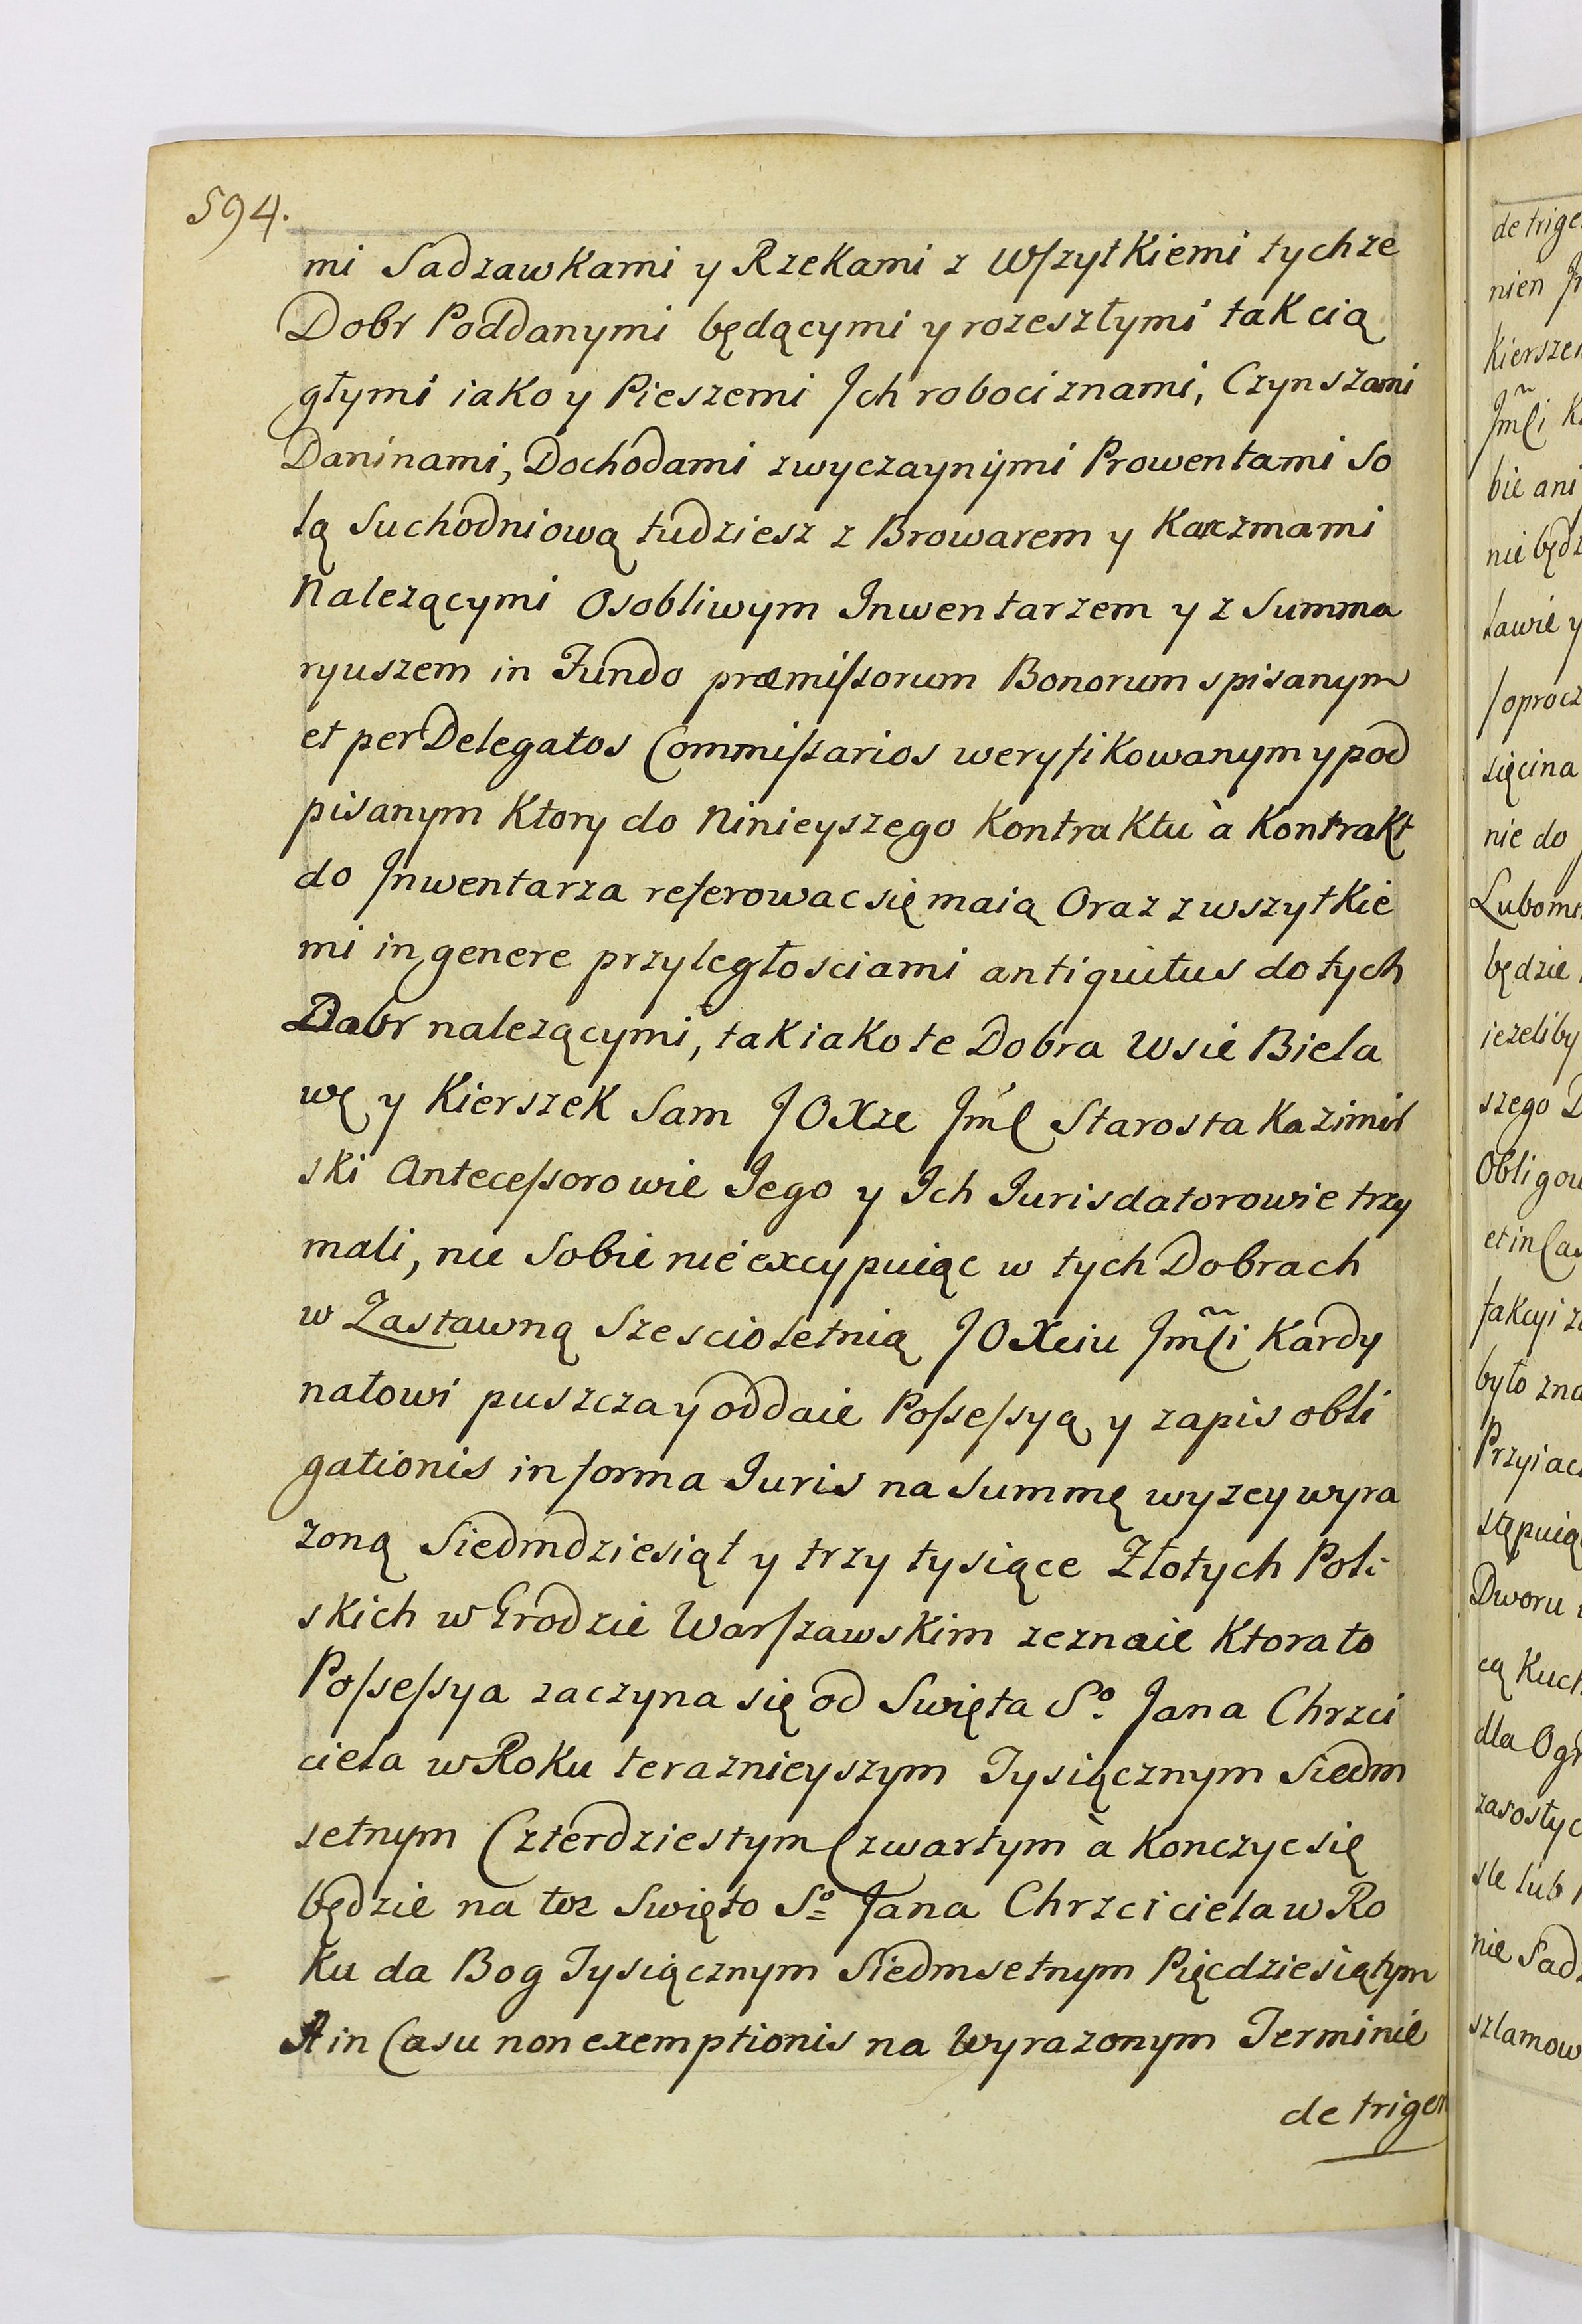 594.
mi Sadzawkami y Rzekami z Wszytkiemi tychze
Dobr Poddanymi będącymi y rozeszłymi tak cią
głymi iako y Pieszemi Ich robociznami, Czynszami
Daninami, Dochodami zwyczaynymi Prowentami So
lą Suchodniową tudziesz z Browarem y Karczmami
Nalezącymi Osobliwym Inwentarzem y z Summa
ryuszem in Fundo præmissorum Bonorum spisanym
et per Delegatos Commissarios weryfikowanym y pod
pisanym Ktory do Ninieyszego Kontraktu à Kontrakt
do Inwentarza referowac się maią Oraz z wszytkie
mi in genere przyległosciami antiquitus do tych
Dobr nalezącymi, tak iako te Dobra Wsie Biela
wę y Kierszek Sam JOXze Jmć Starosta Kazimir
ski Antecessorowie Jego y Ich Jurisdatorowie trzy
mali, nic Sobie nie excypuiąc w tych Dobrach
w Zastawną Szescioletnią JOXciu Jm̃ci Kardy
nałowi puszcza y oddaie Possessyą y zapis obli
gationis in forma Juris na Summę wyzey wyra
zoną Siedmdziesiąt y trzy tysiące Złotych Pol-
skich w Grodzie Warszawskim zeznaie Ktora to
Possessya zaczyna się od Swięta Sº. Jana Chrzci
ciela w Roku teraznieyszym Tysiącznym Siedm
setnym Czterdziestym Czwartym à Konczyc się
będzie na toz Swięto Sº Jana Chrzciciela w Ro
ku da Bog Tysiącznym Siedmsetnym Pięcdziesiątym
A in Casu non exemptionis na Wyrazonym Terminie
de trigen
de trige
nien
Kiersze
Jm̃ci K
bie ani
nie będz
tawie y
/oprocz
sięcina
nie do
Lubom
będzie
iezeliby
szego D
Obligow
et in Ca
fakcyi z
było zna
Przyiac
stępuią
Dworu
cą Kuch
dla Ogr
zarosłyc
sle lub
nie Sad
szlamow